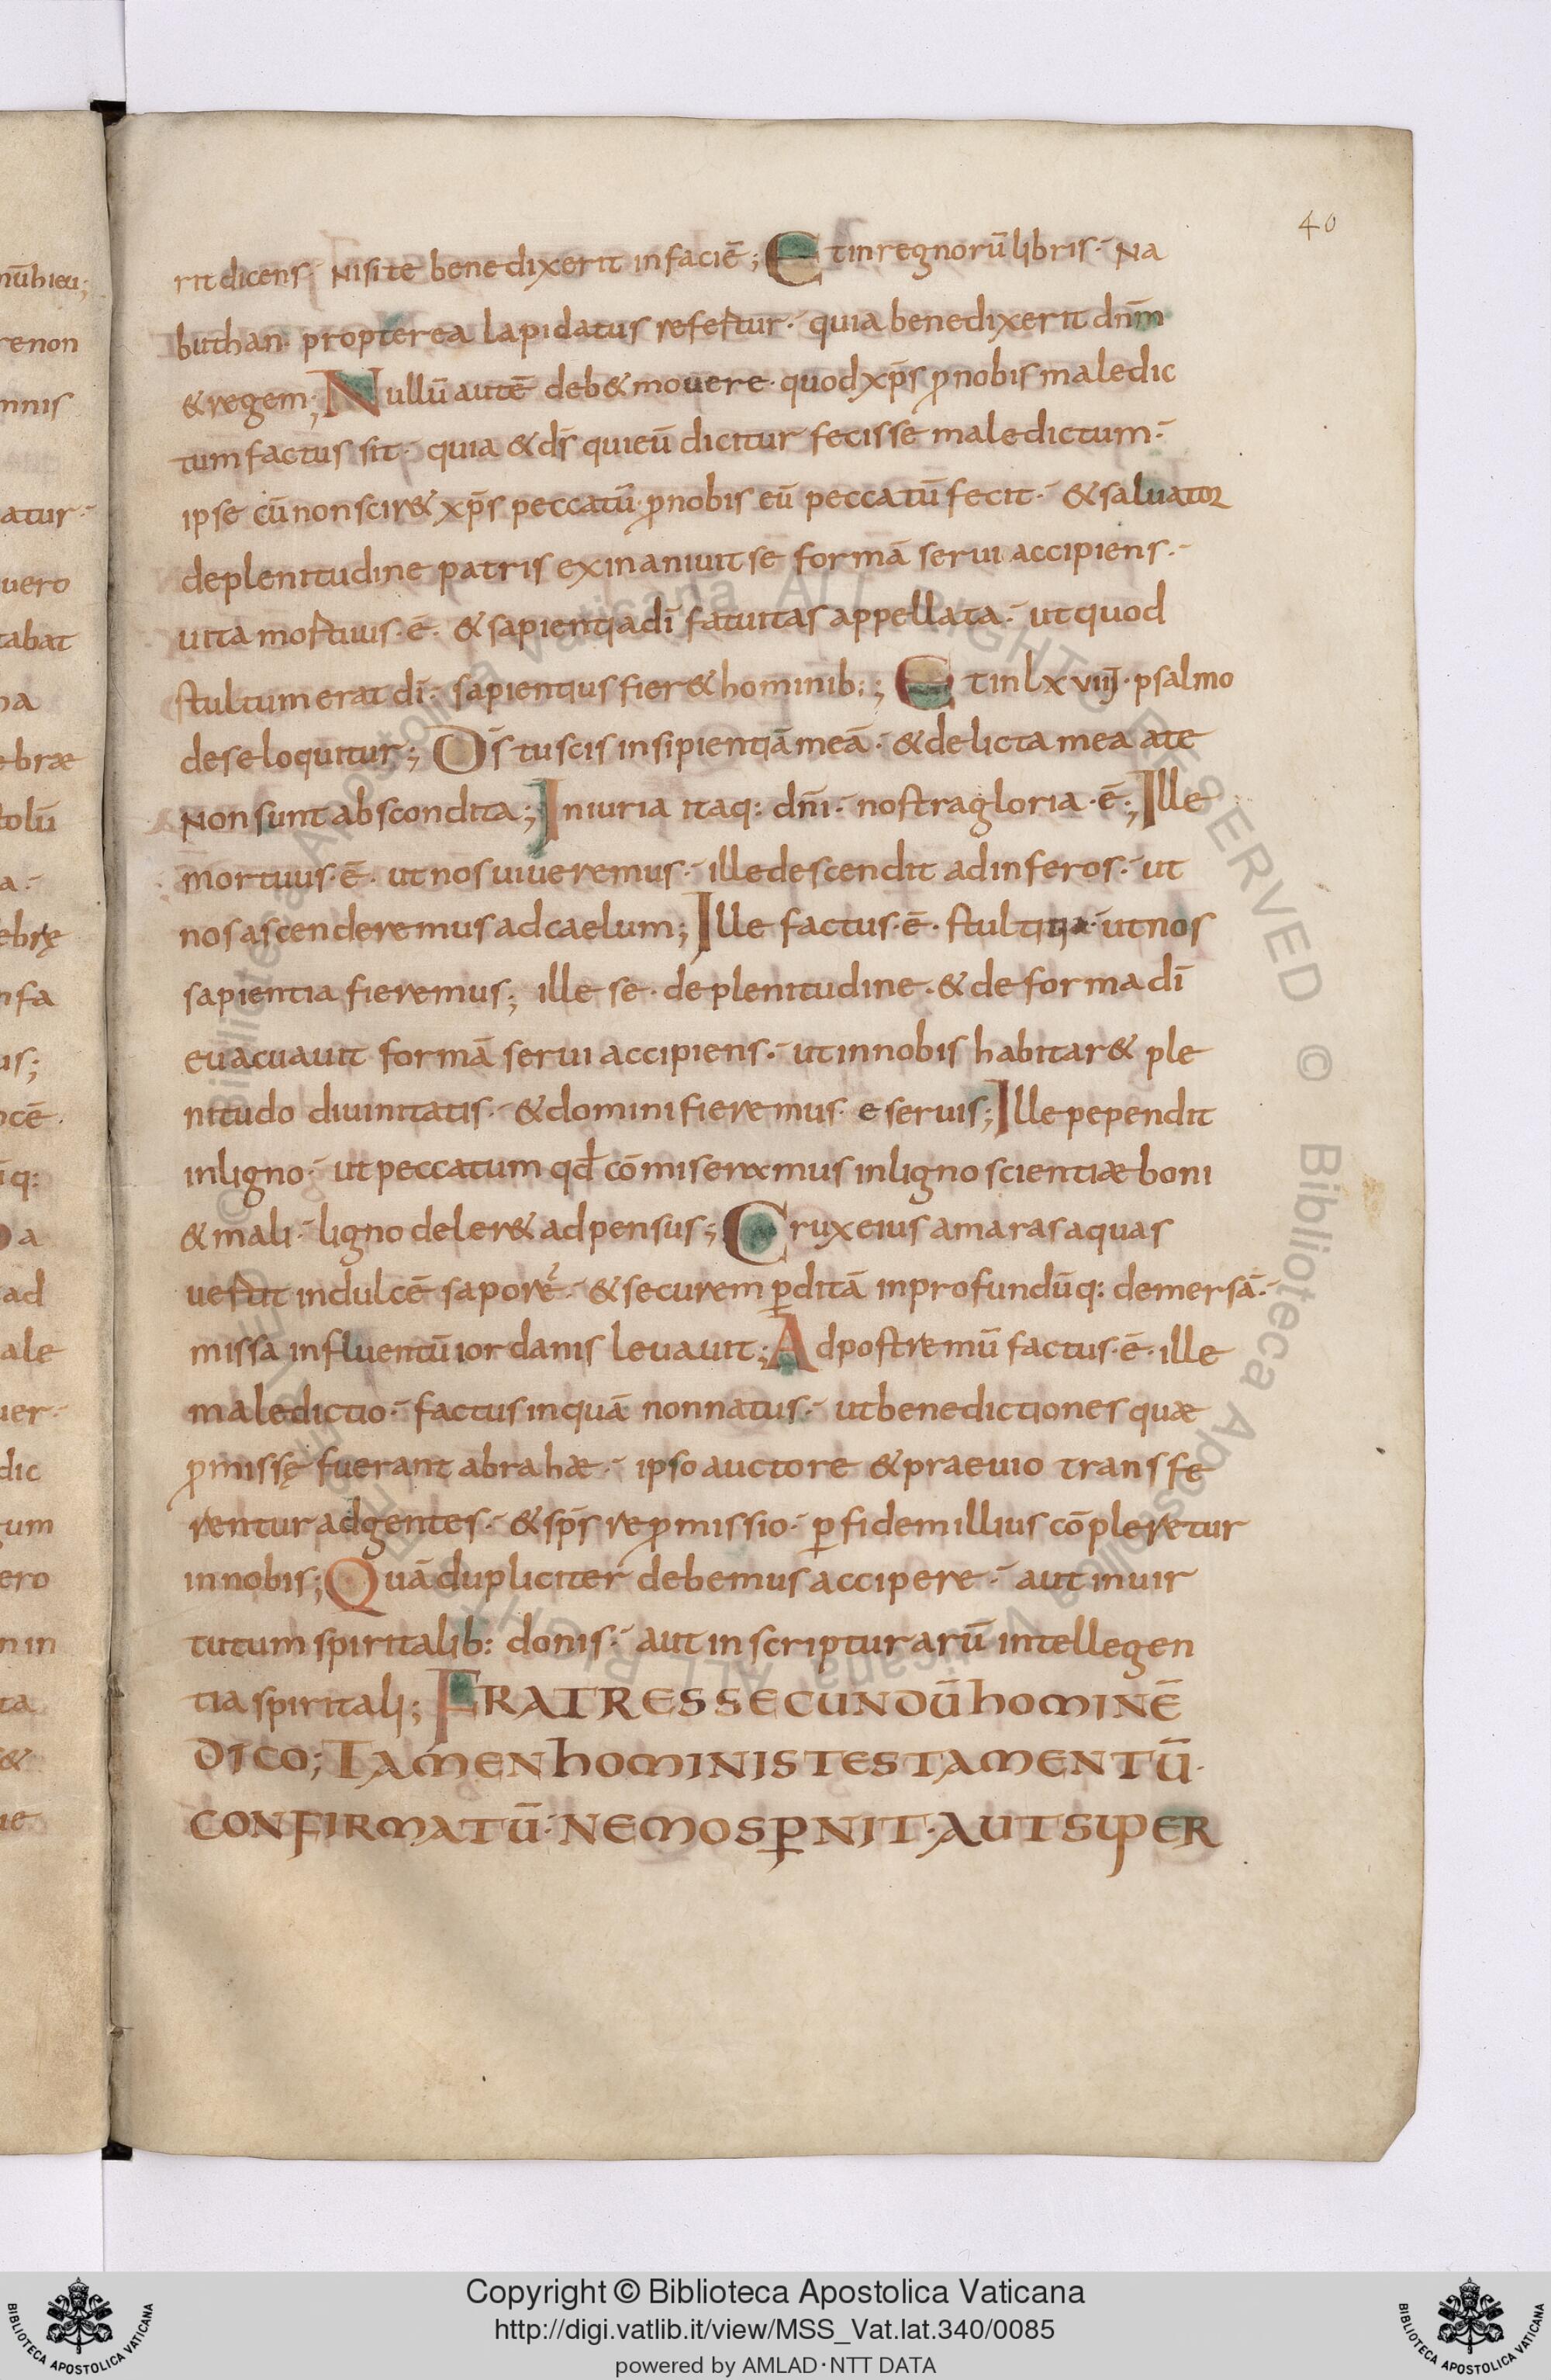 40
rit dicens· Nisi te benedixerit infaciē; Et inregnorū libris· Na
buthan· propterea lapidatus refertur· quia benedixerit dn̄m
& regem; Nullū autē deb& mouere· quod xp̄s ꝓnobis maledic
tum factus sit· quia & ds̄ qui eū dicitur fecisse maledictum·
ipse cū non scir& xp̄s peccatū· ꝓnobis eū peccatū fecit· & saluator
deplenitudine patris exinaniuit se formā serui accipiens·
uita mortuus·ē· & sapientia dī fatuitas appellata· ut quod
stultum erat dī· sapientius fier& hominib:; Et in lxviiij· psalmo
de se loquitur; Ds̄ tu scis insipientiā meā· & delicta mea a te
Non sunt abscondita; Iniuria itaq: dn̄i· nostra gloria·ē; Ille
mortuus·ē· ut nos uiueremus· ille descendit ad inferos· ut
nos ascenderemus ad caelum; Ille factus·ē· stultitia· ut nos
sapientia fieremus; ille se· de plenitudine· & de forma dī
euacuauit formā serui accipiens· ut in nobis habitar& ple
nitudo diuinitatis· & domini fieremus· e seruis; Ille pependit
inligno· ut peccatum qd̄ cōmiseramus inligno scientiæ boni
& mali· ligno deler& adpensus; Crux eius amaras aquas
uertit indulcē saporē· & securem ꝑditā inprofundūq: demersā·
missa influentū iordanis leuauit; Ad postremū factus·ē· ille
maledictio· factus inquā non natus· ut benedictiones quæ
ꝓmissę fuerant abrahæ· ipso auctore & praeuio transfe
rentur ad gentes· & sp̄s reꝓmissio· ꝑ fidem illius cōpleretur
innobis; Quā dupliciter debemus accipere· aut inuir
tutum spiritalib: donis· aut in scripturarū intellegen
tia spiritali; FRATRES SECUNDŪ HOMINĒ
DICO; TAMEN HOMINIS TESTAMENTŪ·
CONFIRMATŪ· NEMO SꝑNIT· AUT SUPER
nūhieu;
renon
mnis
atur·
uero
tabat
ebræ
tolū
a·
ebrę
nfa
us;
ocē·
iq:
a
ad
ale
uer·
dic
tum
ero
n in
ta
&
ue
© Biblioteca Apostolica Vaticana ALL RIGHTS RESERVED © Biblioteca Apostolica Vaticana ALL RIGHTS RESERVED
Copyright © Biblioteca Apostolica Vaticana
http://digi.vatlib.it/view/MSS_Vat.lat.340/0085
powered by AMLAD·NTT DATA
BIBLIOTECA APOSTOLICA VATICANA
BIBLIOTECA APOSTOLICA VATICANA